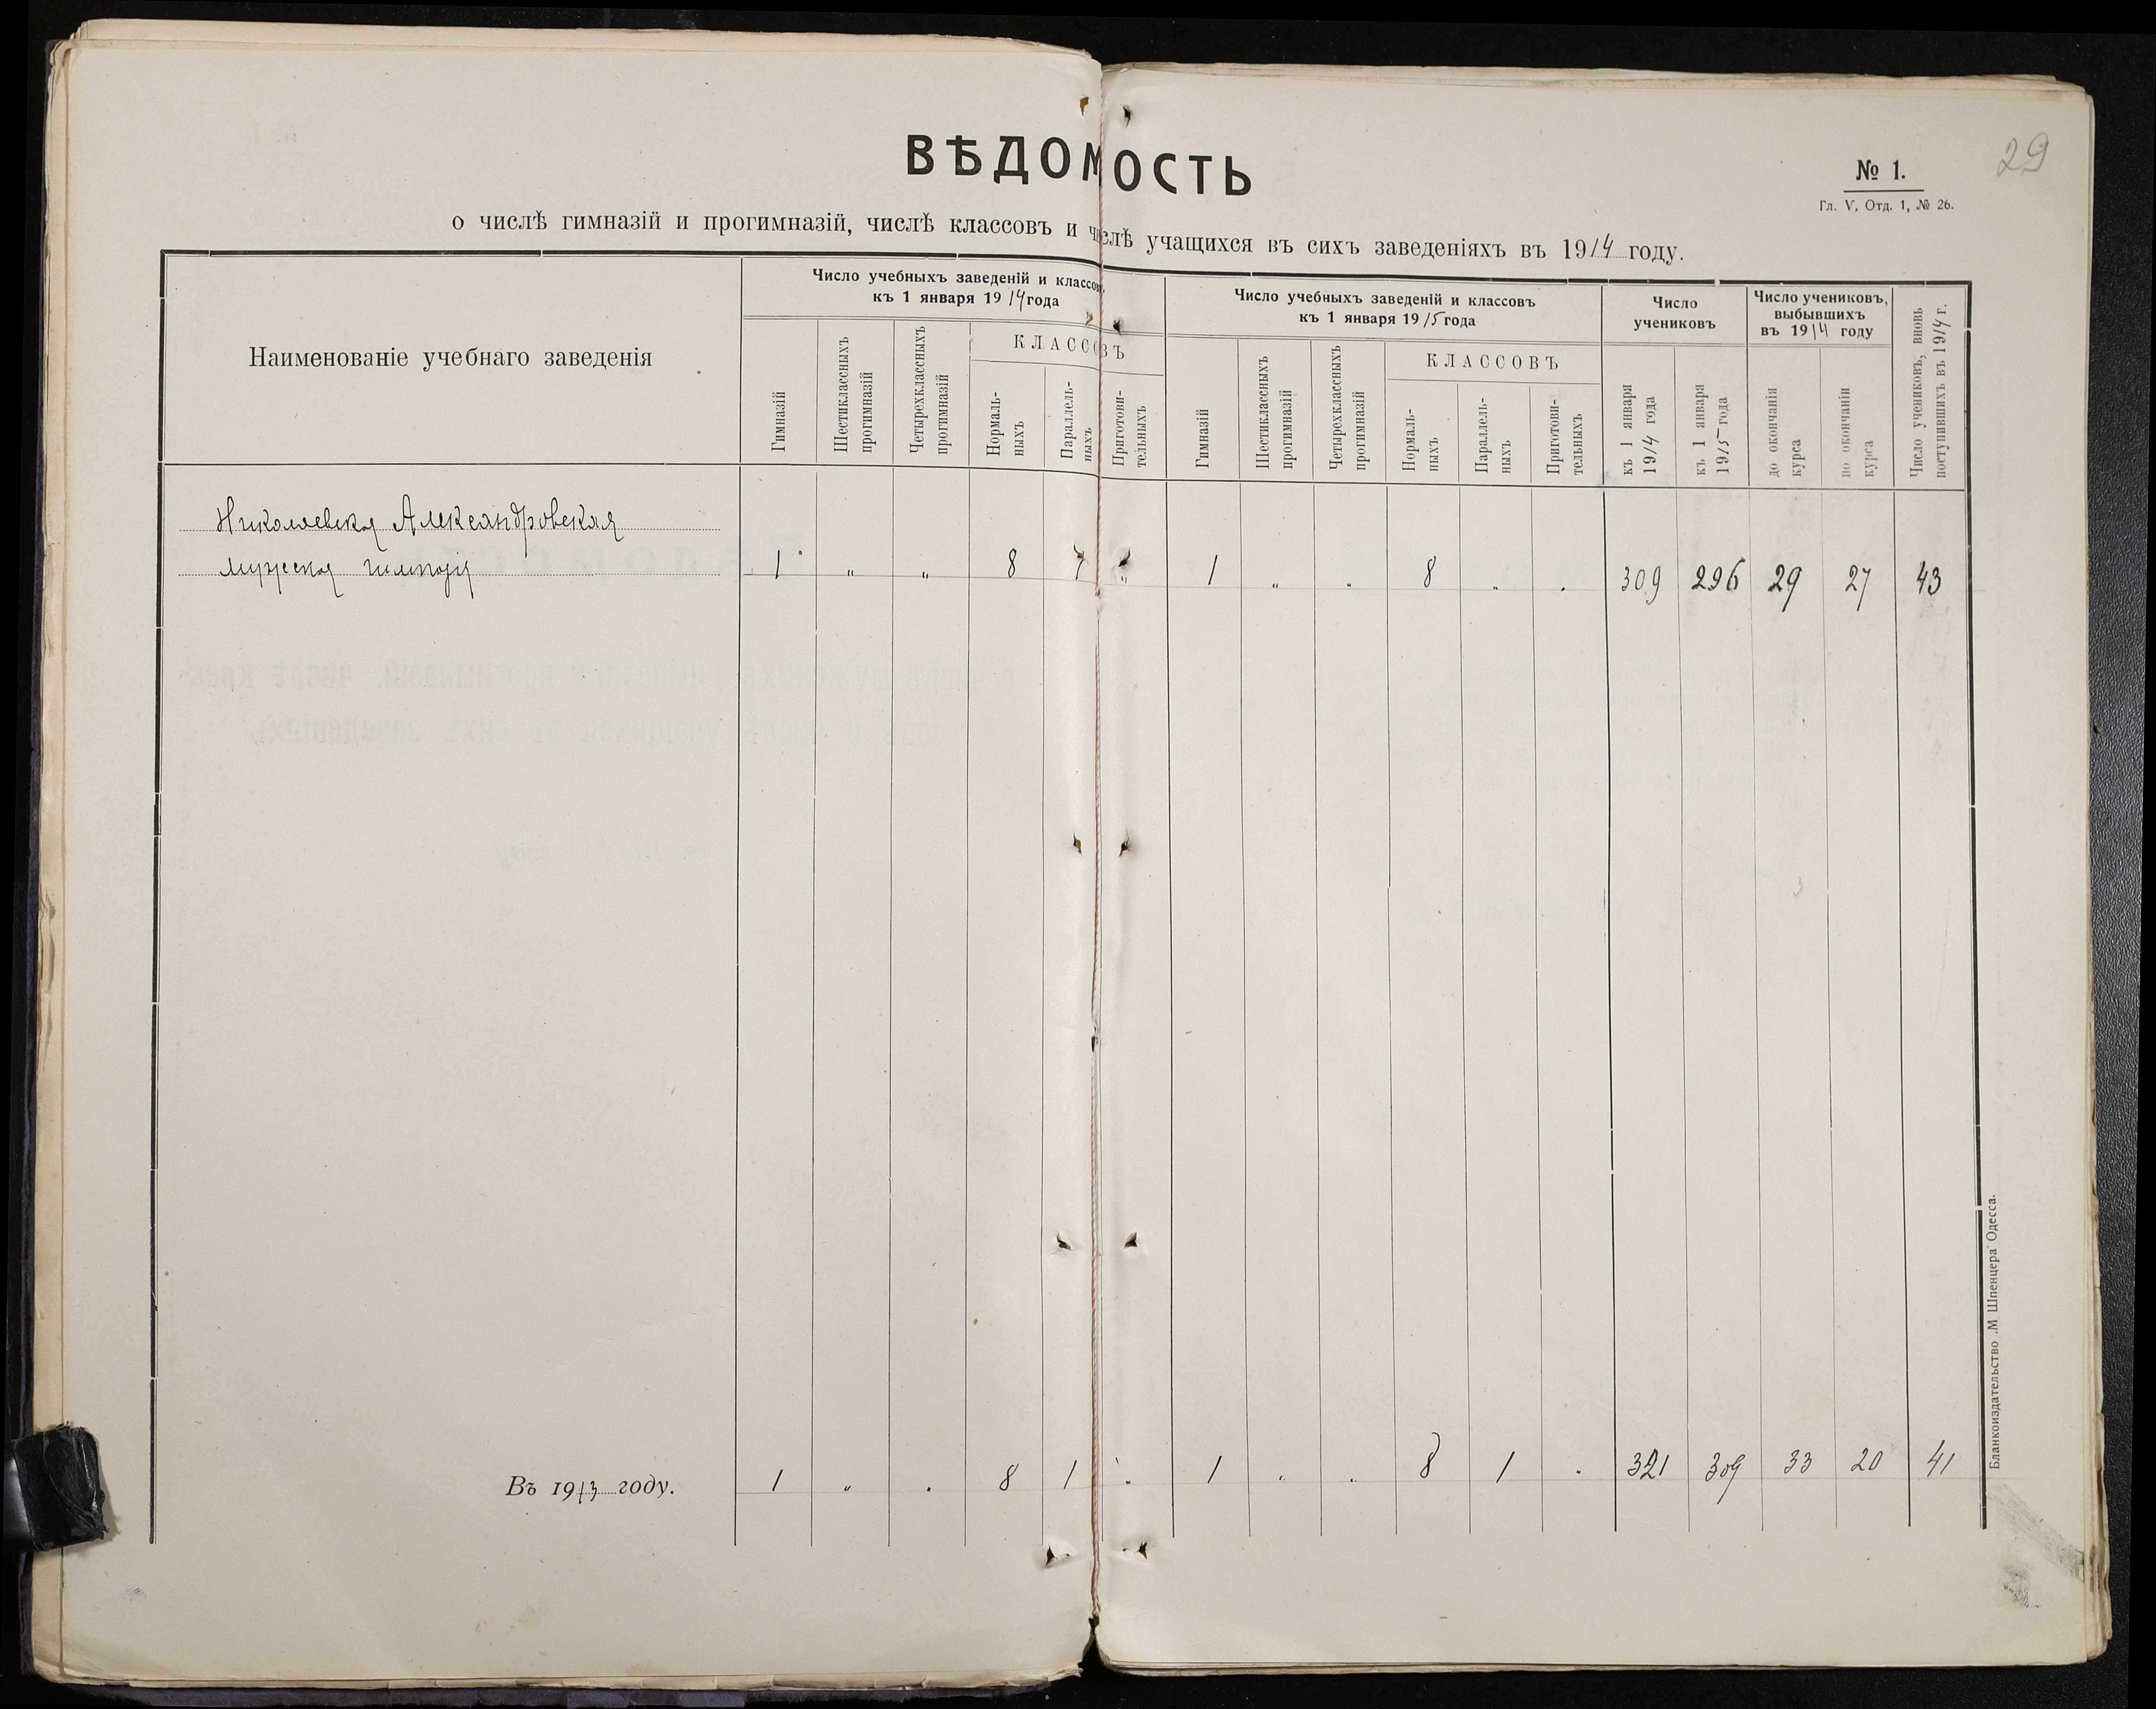 29
ВѢДОМОСТЬ
№ 1.
Гл. V, Отд. 1, № 26.
о числѣ гимназій и прогимназій, числѣ классовъ и числѣ учащихся въ сихъ заведеніяхъ въ 1914 году.
Наименованіе учебнаго заведенія
Число учебныхъ заведеній и классовъ
къ 1 января 1914 года
Гимназій
Шестиклассныхъ
прогимназій
Четырехклассныхъ
прогимназій
КЛАССОВЪ
Нормаль-
ныхъ
Параллель-
ныхъ
Приготови-
тельныхъ
Число учебныхъ заведеній и классовъ
къ 1 января 1915 года
Гимназій
Шестиклассныхъ
прогимназій
Четырехклассныхъ
прогимназій
КЛАССОВЪ
Нормаль-
ныхъ
Параллель-
ныхъ
Приготови-
тельныхъ
Число
учениковъ
къ 1 января
1914 года
къ 1 января
1915 года
Число учениковъ,
выбывшихъ
въ 1914 году
до окончанія
курса
по окончаніи
курса
Число учениковъ, вновь
поступившихъ въ 1914 г.
Николаевская Александровская
мужская гимназія 1 „ „ 8 „ 1 „ . 8 „ . 309 296 29 27 43
Въ 1913 году. 1 „ . 8 1 . 1 . . 8 1 . 321 309 33 20 41
Бланкоиздательство „М Шпенцера" Одесса.